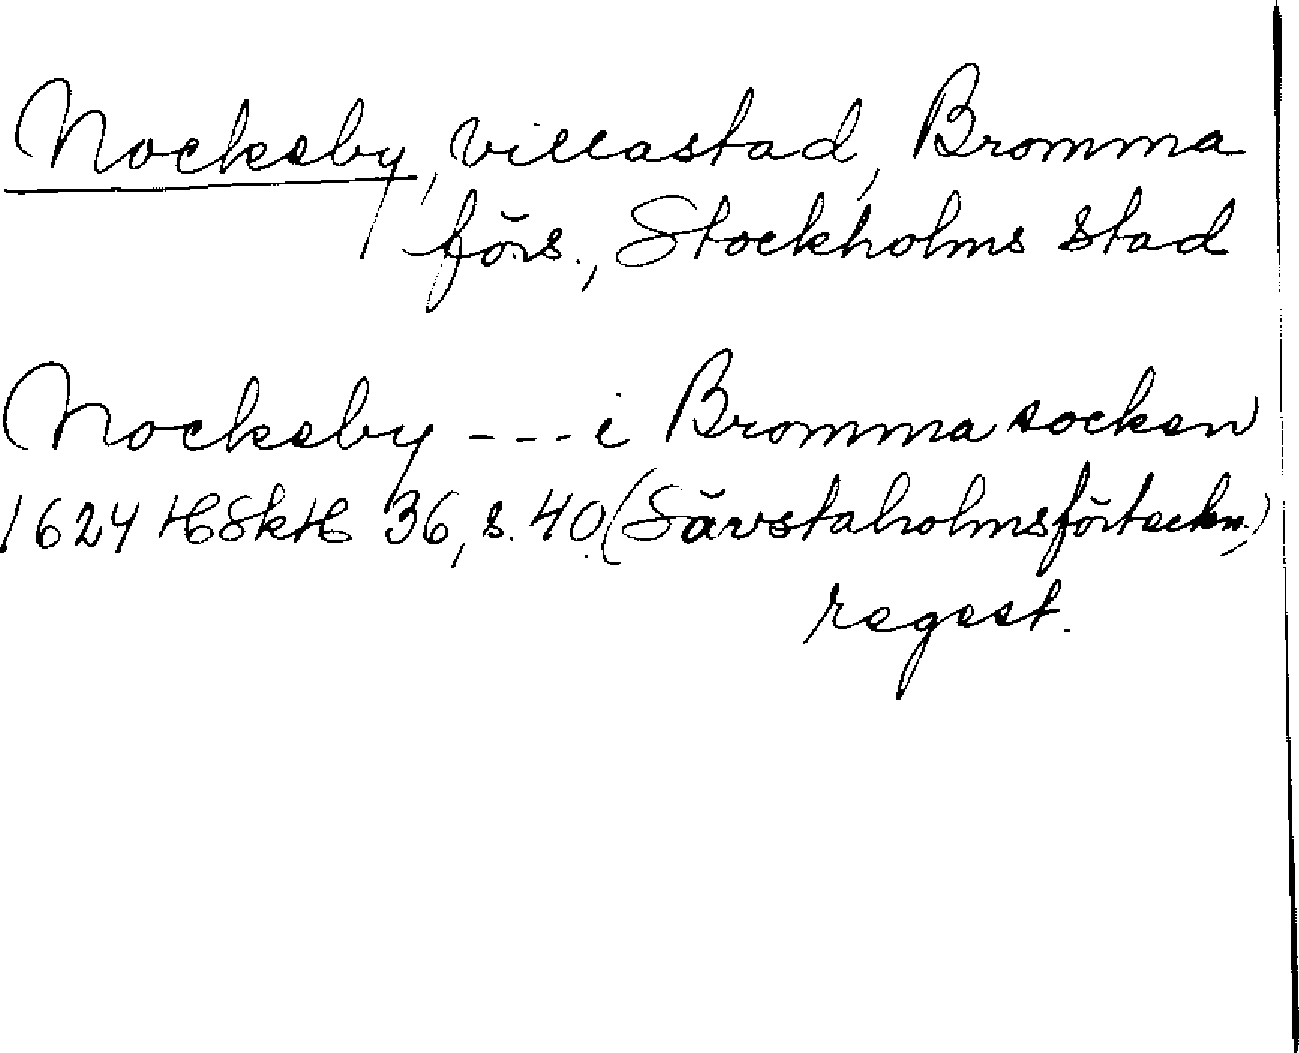 Nockeby, villastad, Bromma
förs., Stockholms stad
Nockeby --- i Bromma socken
1624 HSkH 36, s. 40. (Sävstaholmsförteckn.)
regest.